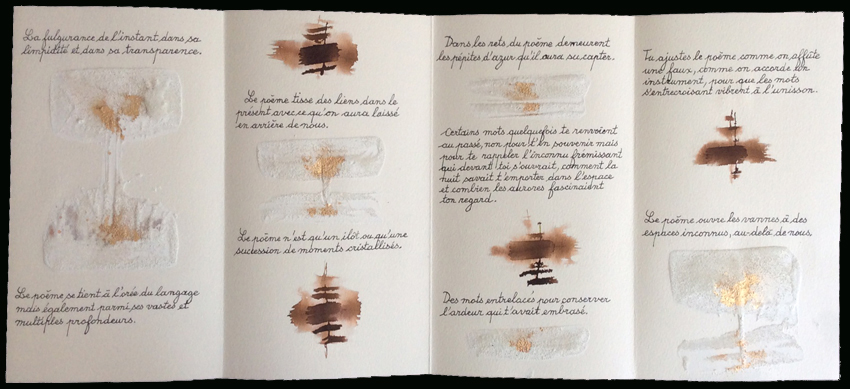 La fulgurance de l'instant dans sa
limpidité et dans sa transparence.
Le poème se tient à l'orée du langage
mais également parmi ses vastes et
multiples profondeurs.
Le poème tisse des liens, dans le
présent avec ce qu'on aura laissé
en arrière de nous.
Le poème n'est qu'un îlot ou qu'une
sucession de moments cristallisés.
Dans les rets du poème demeurent
les pépites d'azur qu'il aura su capter.
Certains mots quelquefois te renvoient
au passé, non pour t'en souvenir mais
pour te rappeler l'inconnu frémissant
qui devant toi s'ouvrait, comment la
nuit savait t'emporter dans l'espace
et combien les aurores fascinaient
ton regard.
Des mots entrelacés pour conserver
l'ardeur qui t'avait embrasé.
Tu ajustes le poème comme on affûte
une faux, comme on accorde un
instrument, pour que les mots
s'entrecroisant vibrent à l'unisson.
Le poème ouvre les vannes à des
espaces inconnus, au-delà de nous.